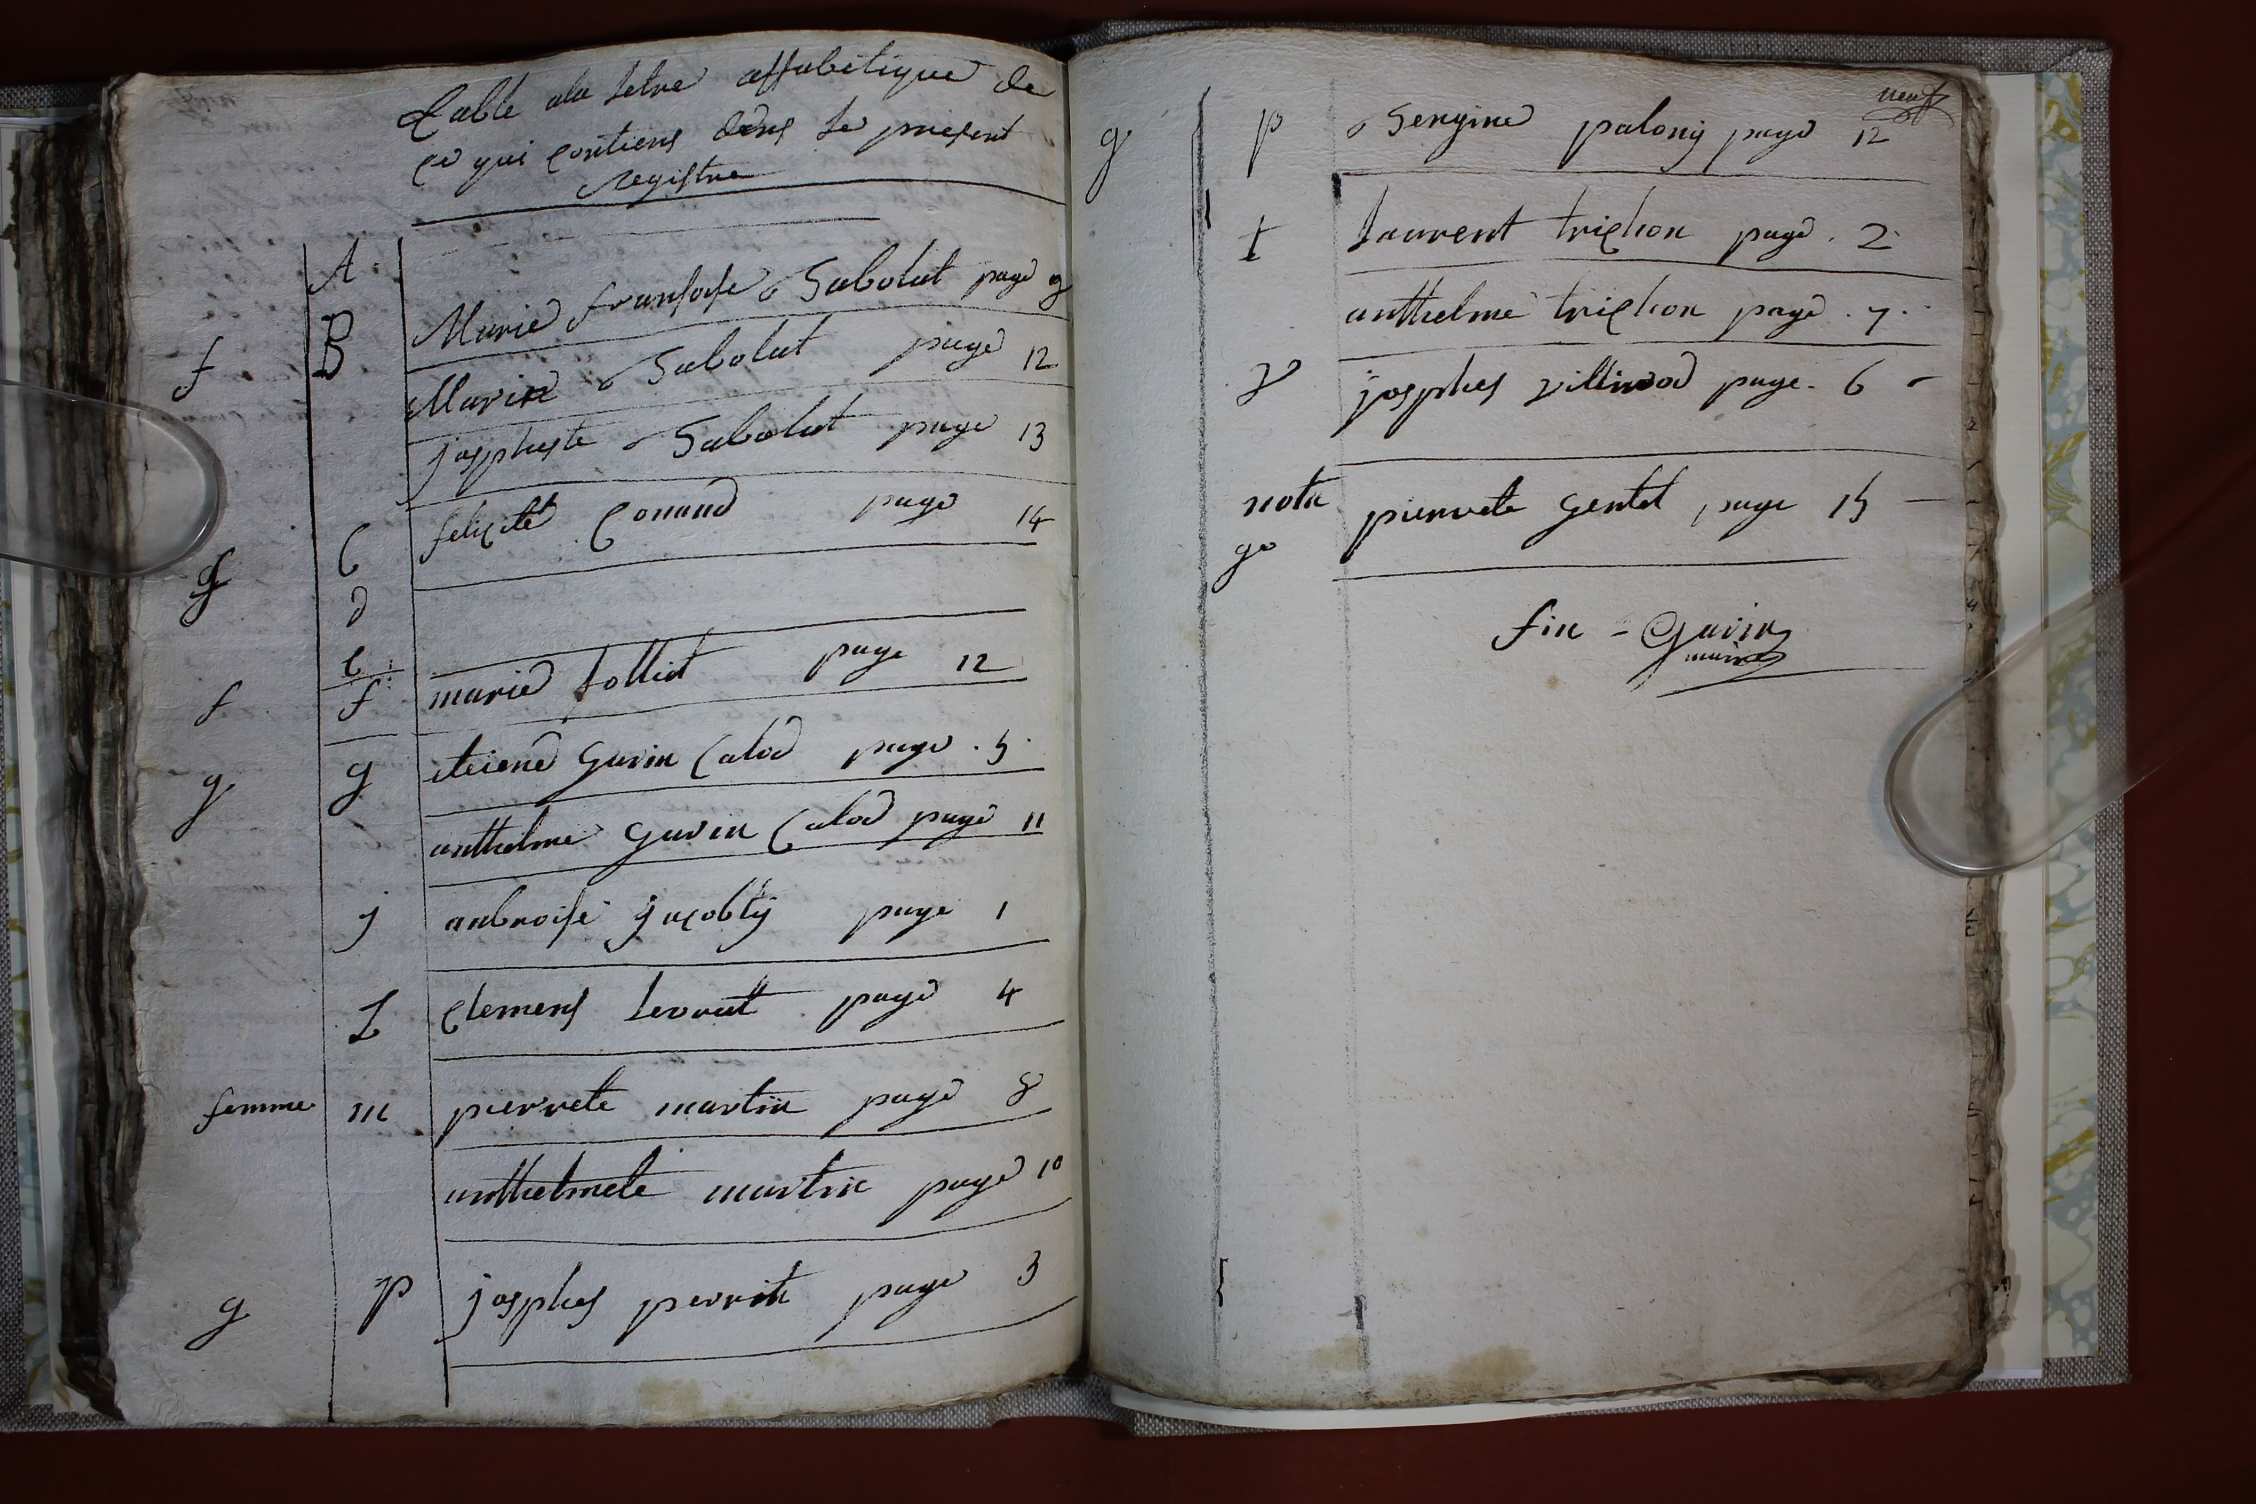 table ala letre affabetique de
ce qui contiens dens le present
registre
A
Marie fransoise Sabolat page 9
f B
Marie Sabolat page 12
josphuste Sabolat page 13
g C felicité Conand page 14
d
e
f f marie folliet page 12
g g eteiene gavin Calod page . 5 .
anthelme gavin Calod page 11
j anbroise jacobtÿ page 1
L Clemens levrat page 4
femme m pierrete martin page 8
anthelmete martin page 10
g p josphes perrin page 3
neuf
g p Sergine palony page 12
t laurent trichon page . 2 .
anthelme trichon page . 7 .
v josphes villiwod page . 6
nota pierrete gentet page 15
go
fin - Gavin
maire